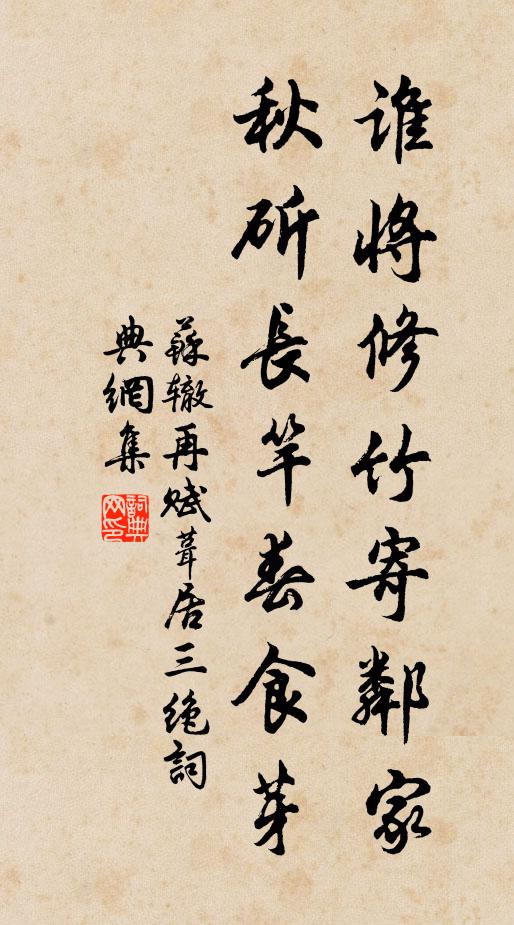 谁將修竹寄鄰家
秋斫長竿春食芽
蘇辙再赋葺居三绝詞
典網集
詞典網印